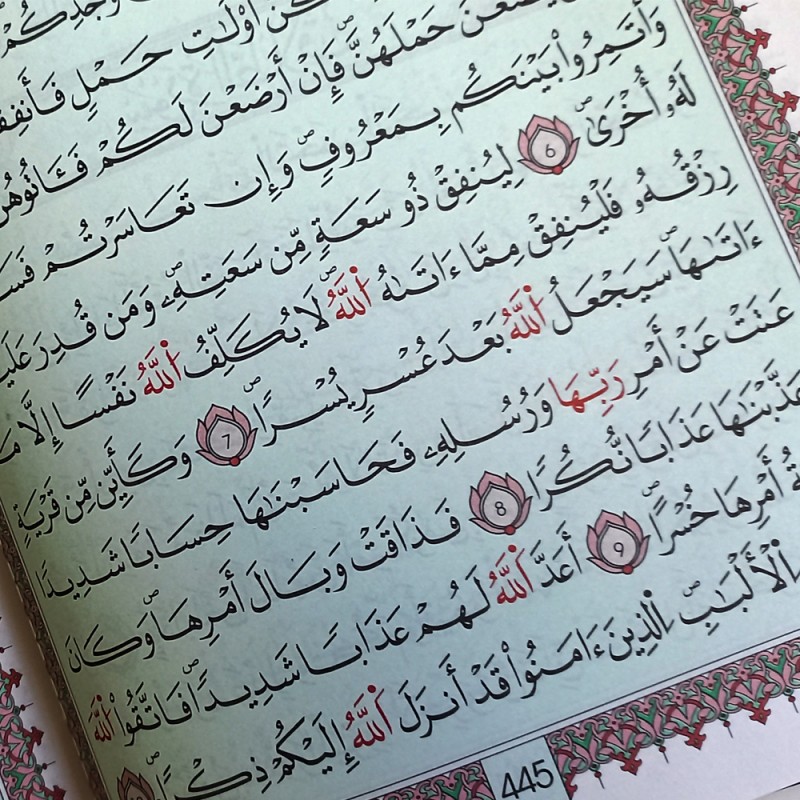 وُجْدِكُمْ
أُوْلَٰتِ حَمْلٍ
حَمْلَهُنَّ فَإِنْ أَرْضَعْنَ لَكُمْ فَـَٔاتُوهُنَّ
وَأْتَمِرُواْ بَيْنَكُم بِمَعْرُوفٍۖ وَإِن تَعَاسَرْتُمْ
لَهُۥ أُخْرَىٰۖ 6 لِيُنفِقْ ذُو سَعَةٍ مِّن سَعَتِهِۦۖ وَمَن قُدِرَ
رِزْقُهُۥ فَلْيُنفِقْ مِمَّآ ءَاتَىٰهُ اُللَّهُۖ لَا يُكَلِّفُ اُللَّهُ نَفْسًا إِلَّا مَآ
ءَاتَىٰهَاۖ سَيَجْعَلُ اُللَّهُ بَعْدَ عُسْرٍ يُسْرًاۖ 7 وَكَأَيِّن مِّن قَرْيَةٍ
عَتَتْ عَنْ أَمْرِ رَبِّهَا وَرُسُلِهِۦ فَحَاسَبْنَٰهَا حِسَابًا شَدِيدًا
عَذَّبْنَٰهَا عَذَابًا نُّكُرًا 8 فَذَاقَتْ وَبَالَ أَمْرِهَاۖ وَكَانَ
أَمْرِهَا خُسْرًاۖ 9 أَعَدَّ اَللَّهُ لَهُمْ عَذَابًا شَدِيدًاۖ فَاتَّقُواْ اُللَّهَ
اِلْأَلْبَٰبِۖ اِلذِينَ ءَامَنُواْ قَدْ أَنزَلَ اَللَّهُ إِلَيْكُمْ ذِكْرًاۖ
445